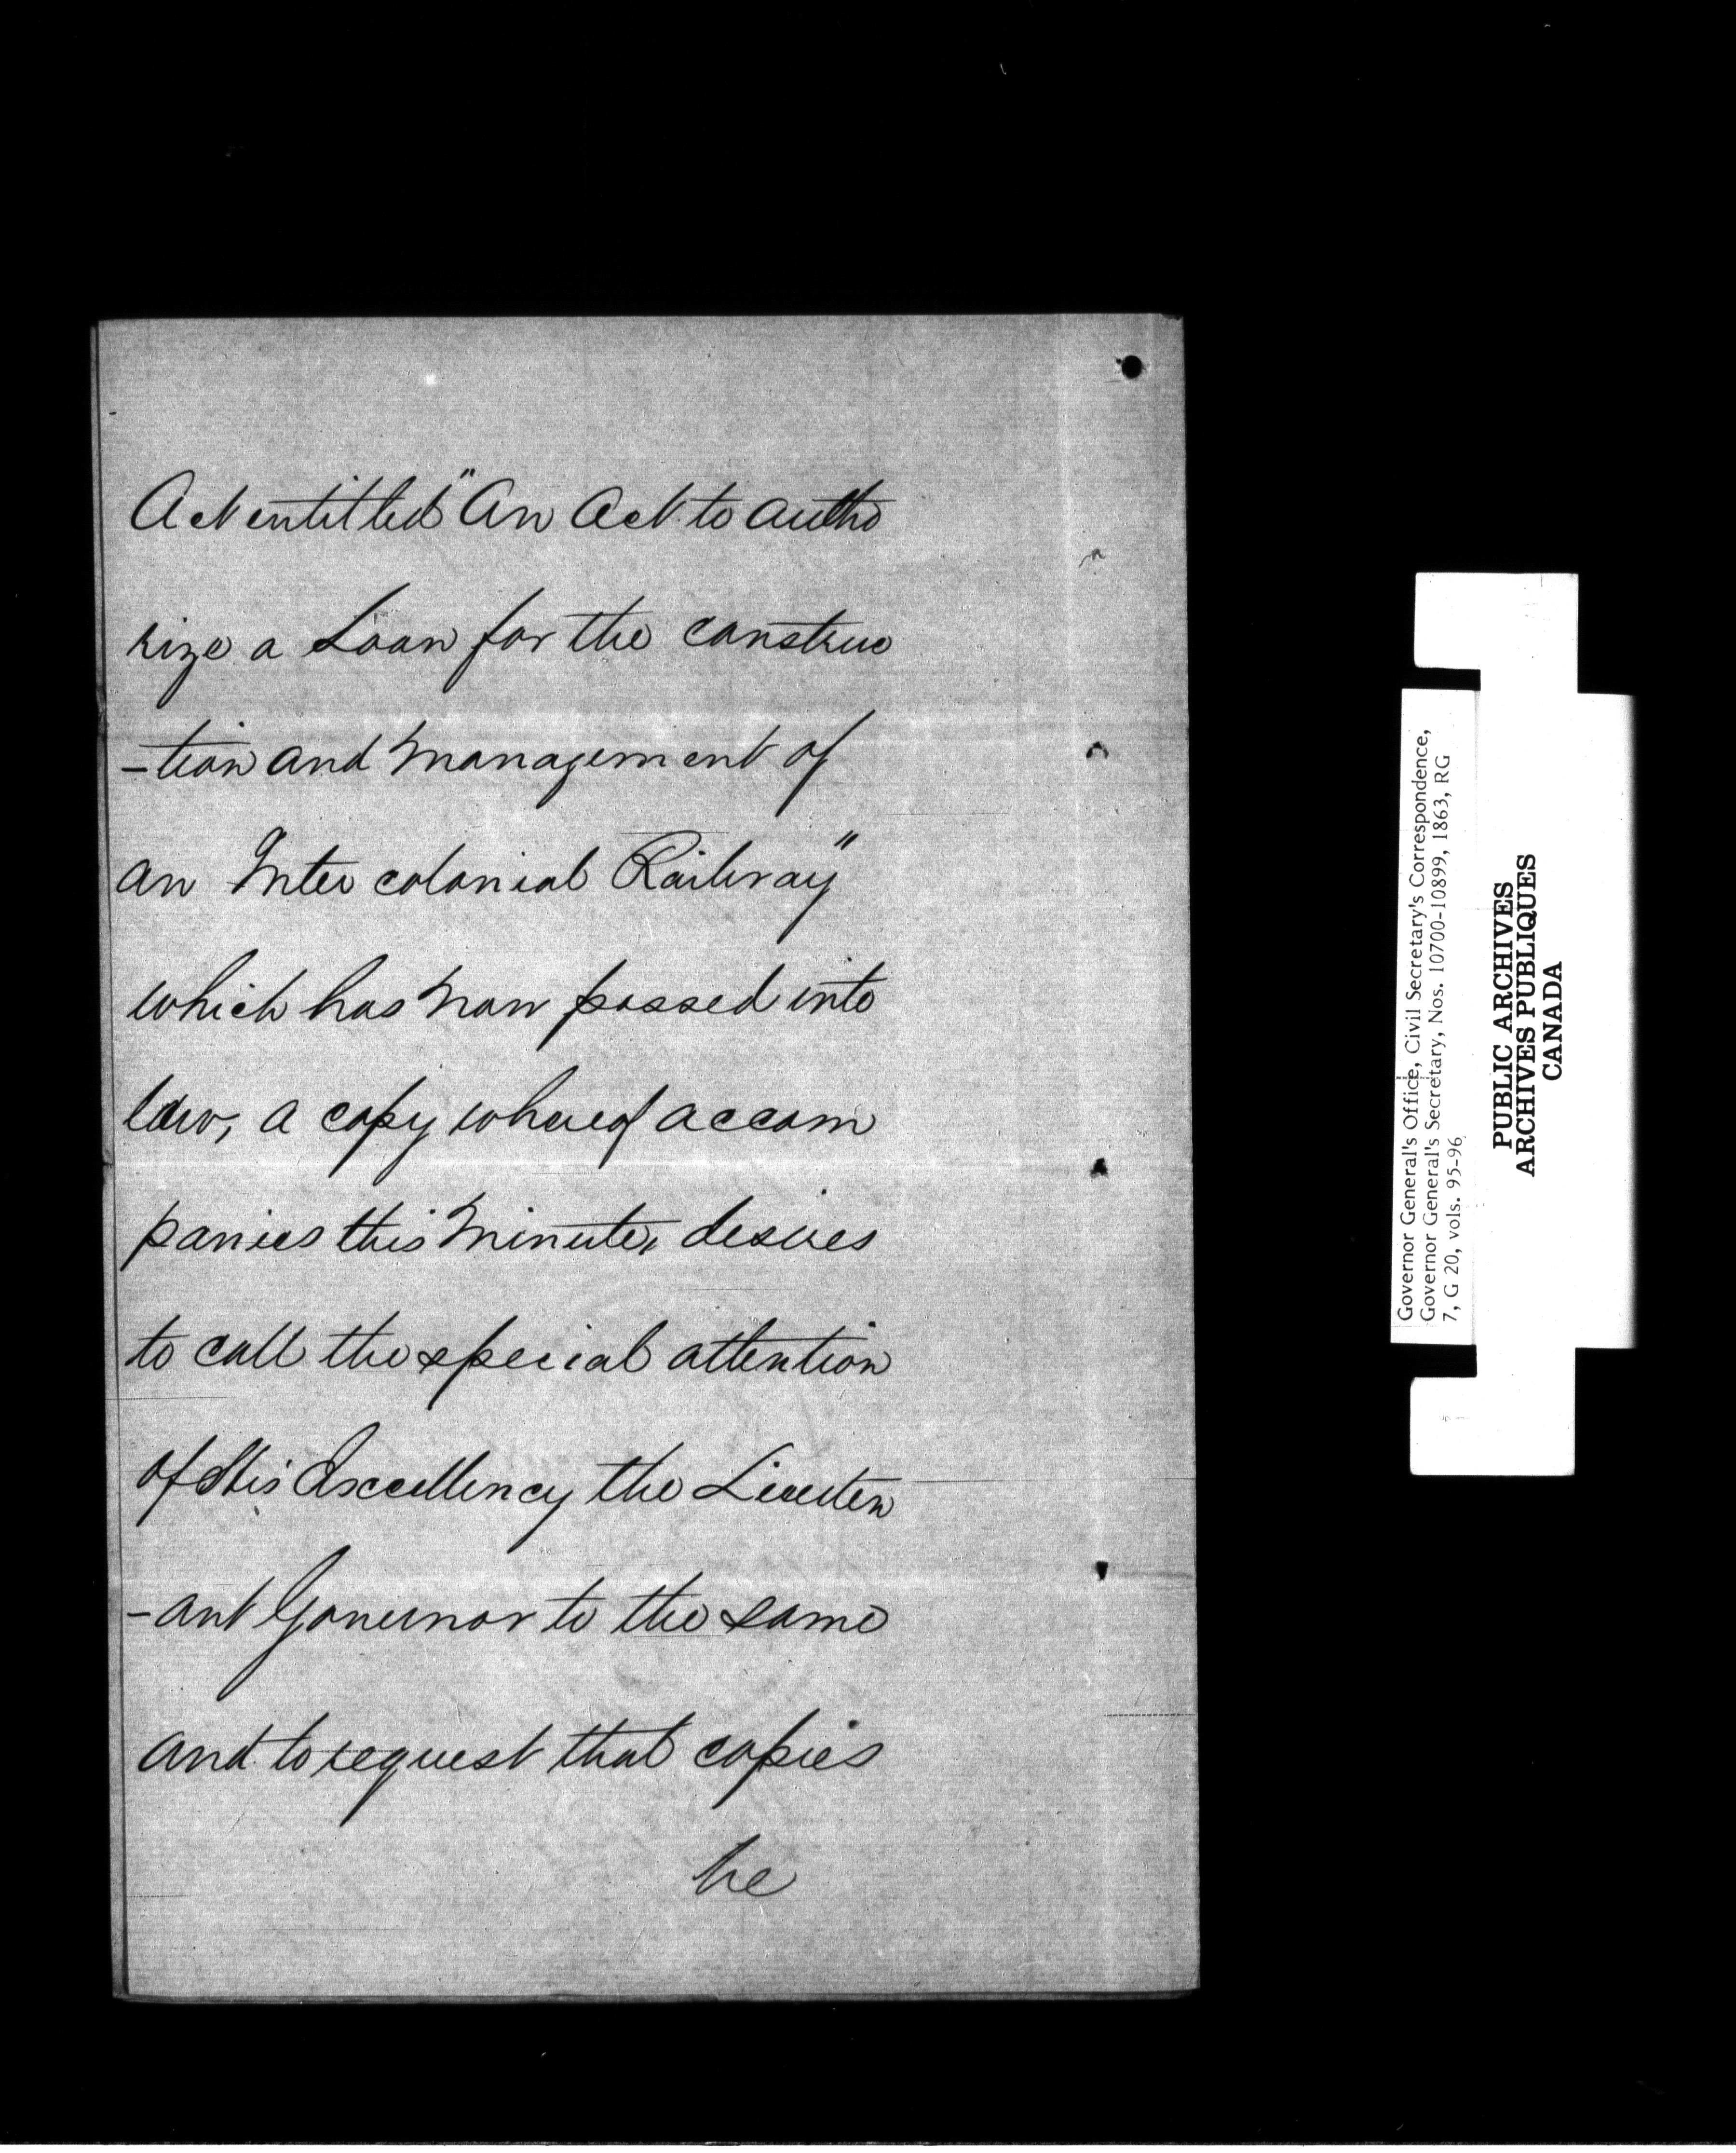 Act entitled "An Act to autho
rize a Loan for the construc
-tion and Management of
an Inter colonial Railway"
which has now passed into
law, a copy whereof accom
panies this Minute, desires
to call the special attention
of His Excellency the Lieuten
-ant Governor to the same
and to request that copies
be
Governor General's Office, Civil Secretary's Correspondence,
Governor General's Secretary, Nos. 10700-10899, 1863, RG
7, G 20, vols. 95-96
PUBLIC ARCHIVES
ARCHIVES PUBLIQUES
CANADA